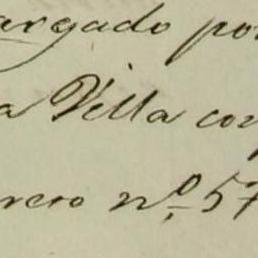 argado por
a Villa con
rero nº 57